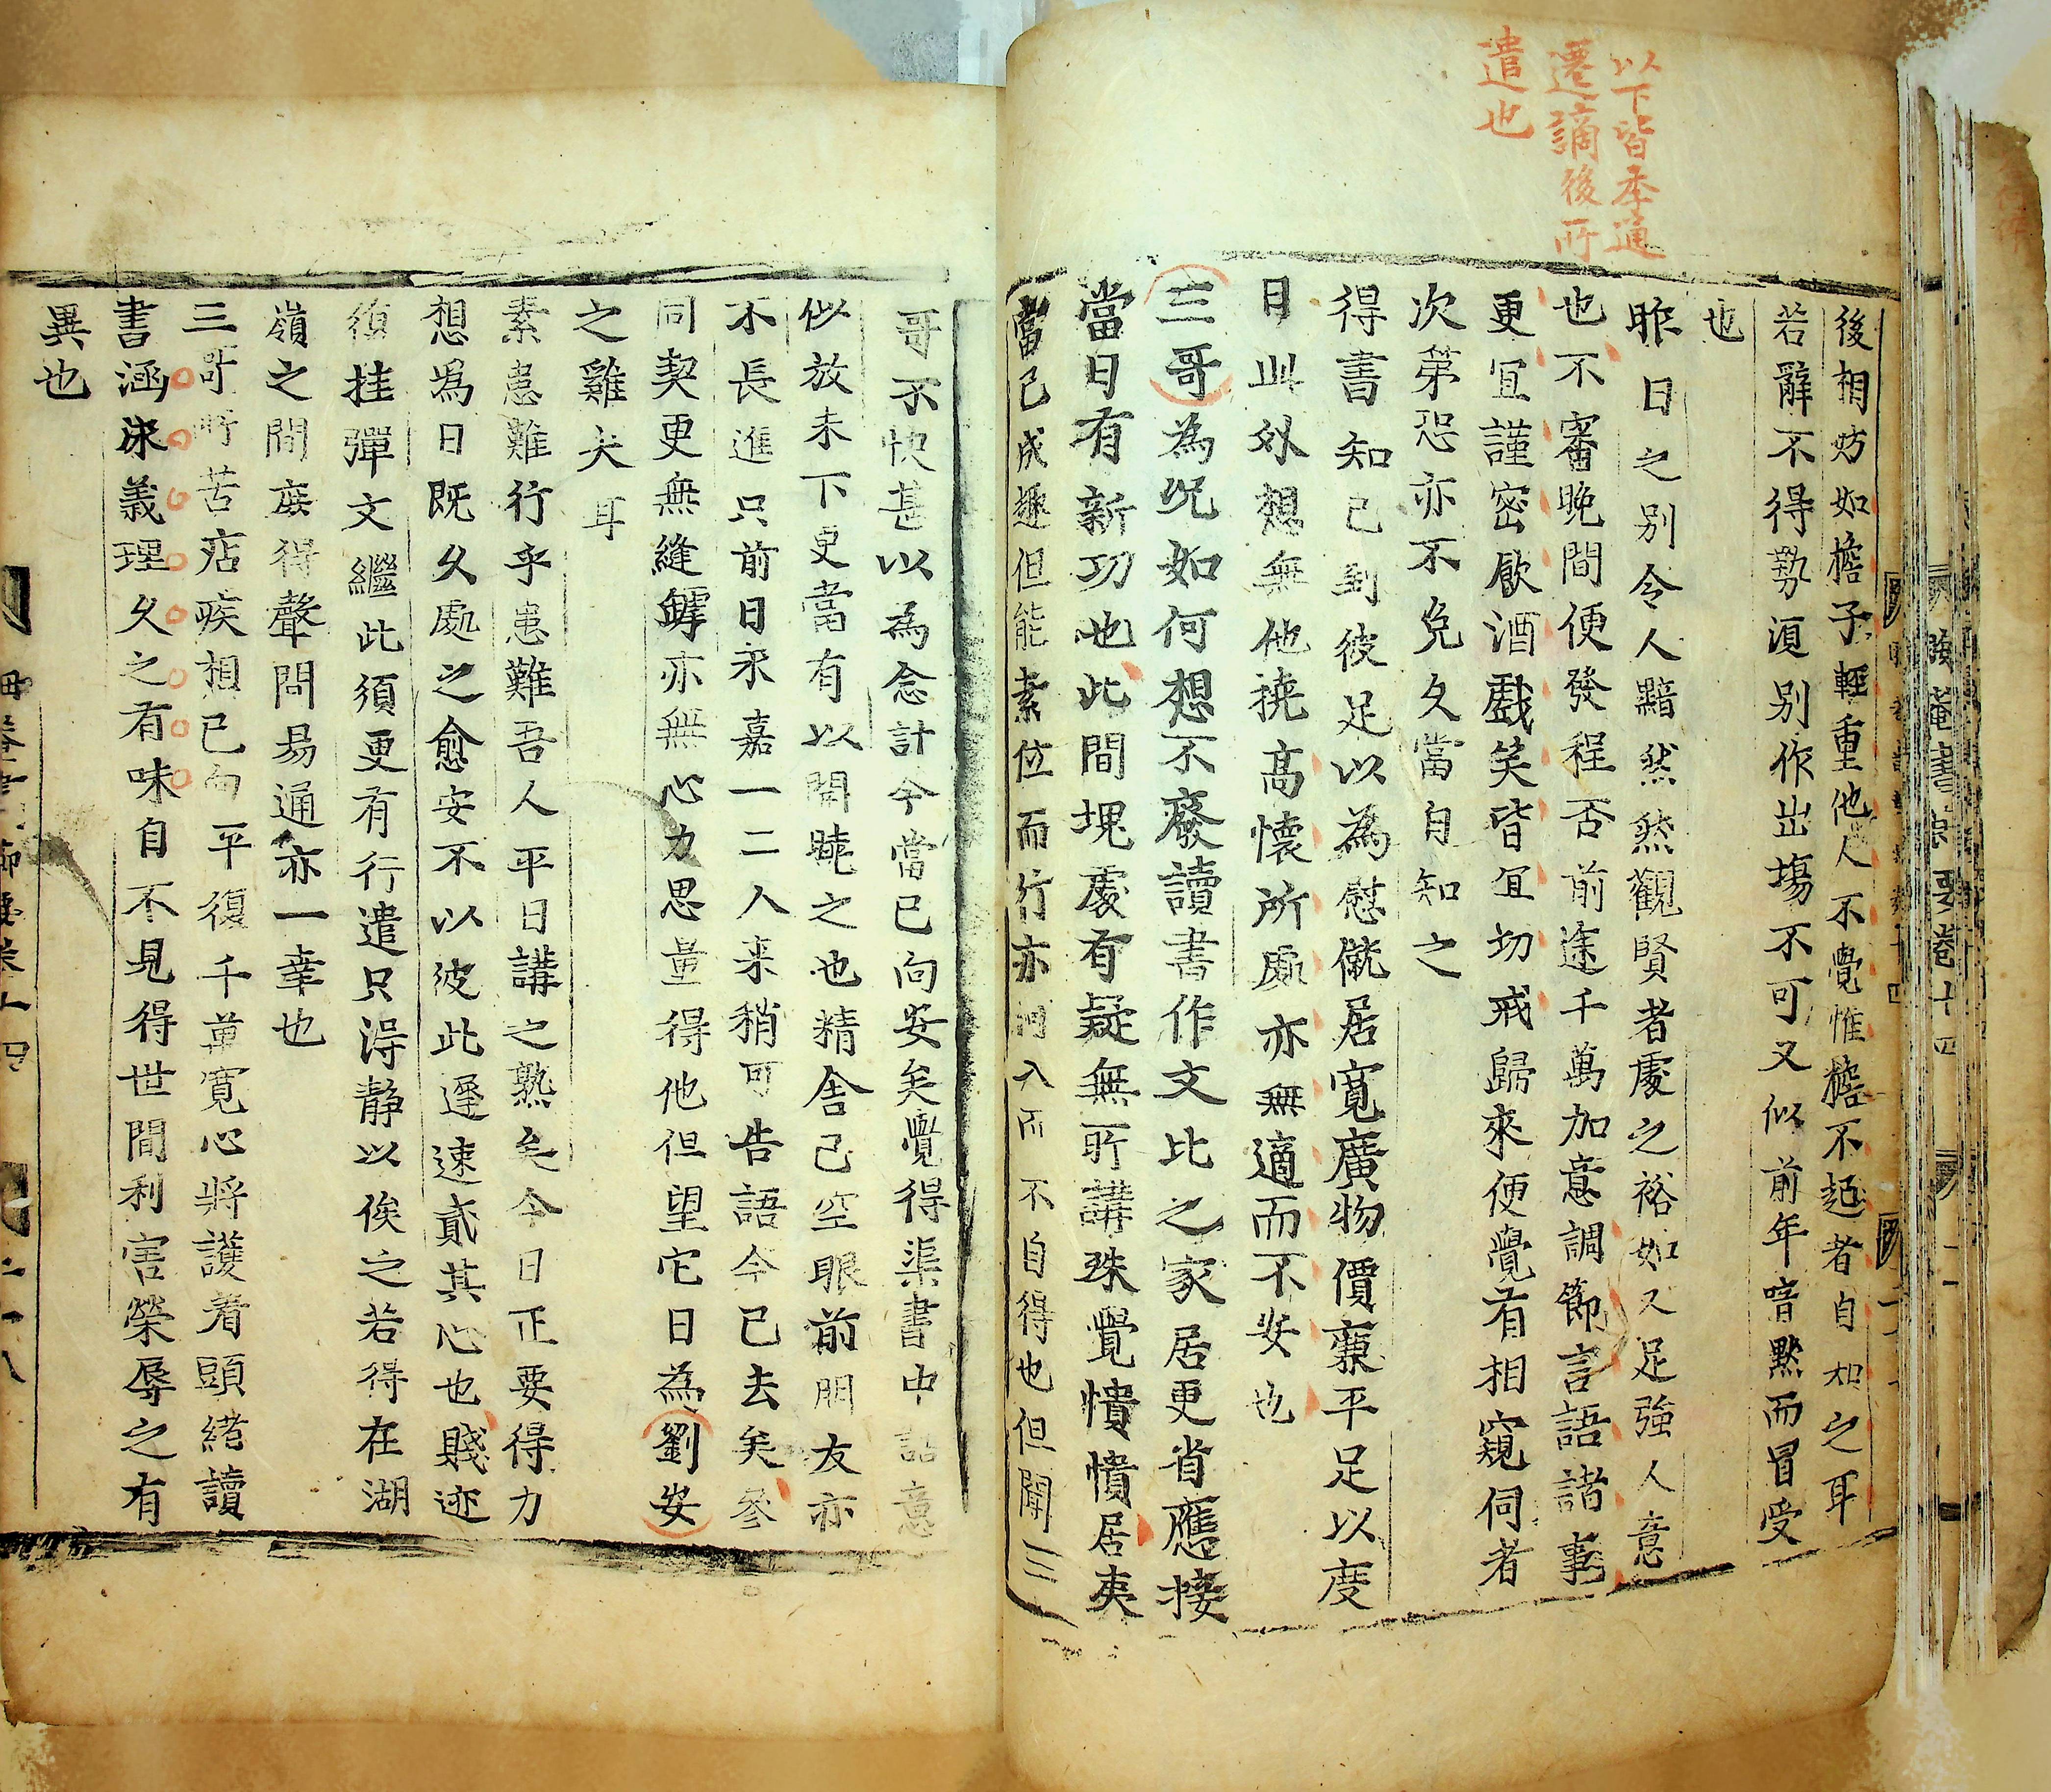 以下皆季通
遷謫後所
遣也
後相妨如檐子輕重他人不覺惟檐不起者自知之耳
若辭不得勢須別作出場不可又似前年喑默而冒受
也
昨日之别令人黯然然觀賢者處之裕如又足強人意
也不審晚間便發程否前途千萬加意調節言語諸事
更宜謹密飲酒戲笑皆宜切戒歸來便覺有相窺伺者
次第恐亦不免久當自知之
得書知已到彼足以為慰僦居寬廣物價廉平足以度
日此外想無他撓高懷所處亦無適而不安也
三哥為況如何想不廢讀書作文比之家居更省應接
當日有新功也此間塊處有疑無所講殊覺憒憒居夷
當已成趣但能素位而行亦何入而不自得也但聞三
哥不快甚以為念計今當已向安矣覺得渠書中語意
似放未下更當有以開曉之也精舍已空眼前朋友亦
不長進只前日永嘉一二人来稍可告語今已去矣參
同契更無縫罅亦無心力思量得他但望它日為劉安
之雞犬耳
素患難行乎患難吾人平日講之熟矣今日正要得力
想為日既久處之愈安不以彼此遲速貳其心也賤迹
復挂彈文繼此須更有行遣只得靜以俟之若得在湖
嶺之間庶得聲問易通亦一幸也
三哥所苦店疾想已向平復千萬寛心將護着頭緒讀
書涵泳義理久之有味自不見得世間利害榮辱之有
異也
晦菴書節要卷十四